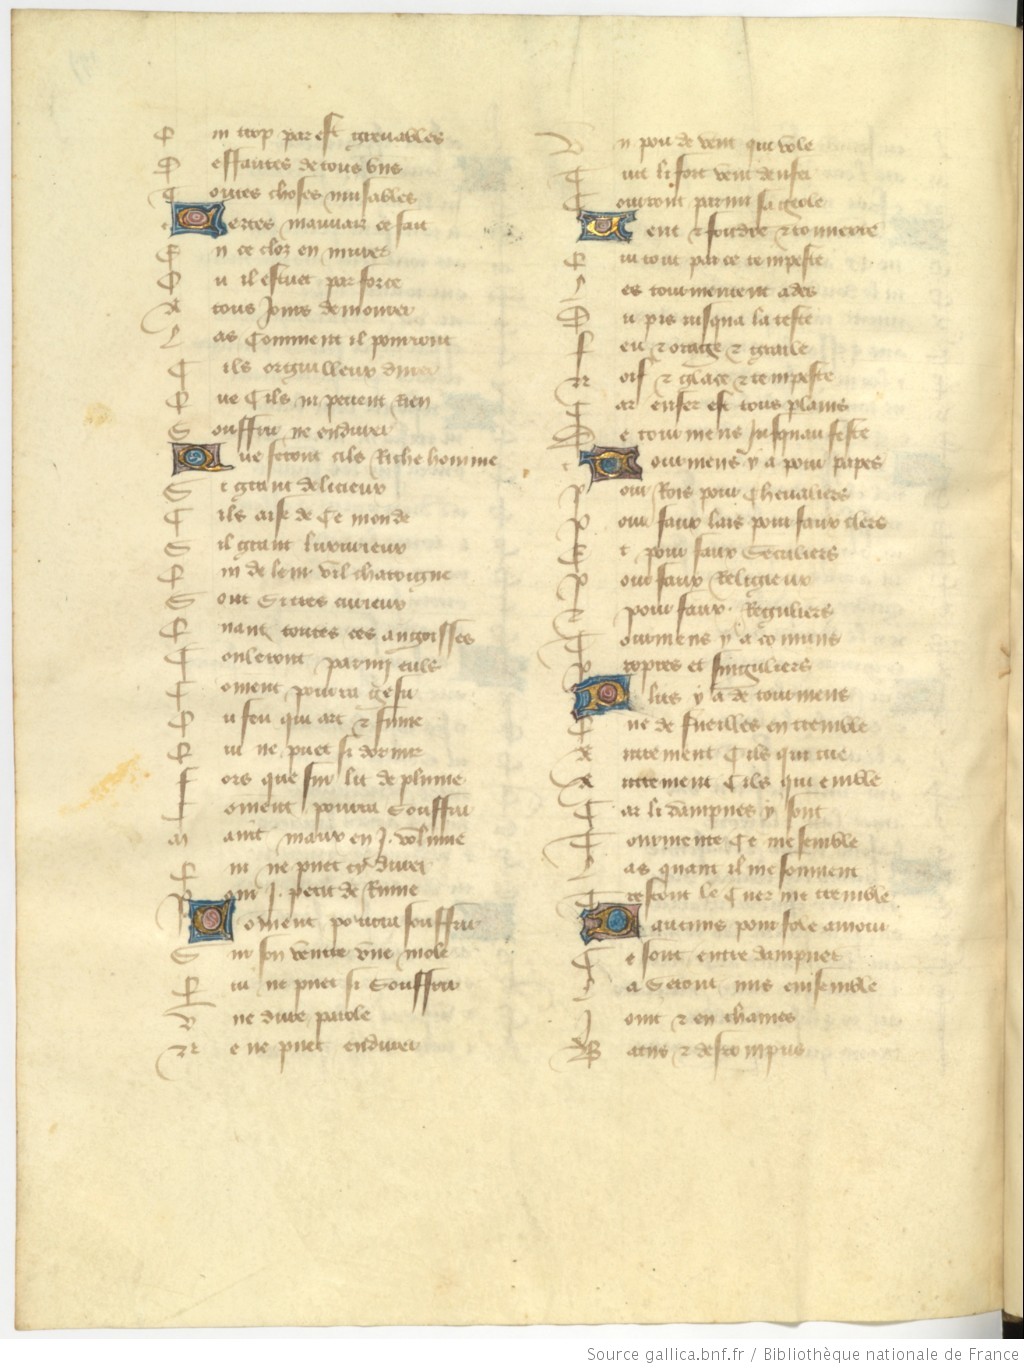 Q ui trop par est greuables
D effautes de tous uns
T outes choses nuisables
C ertes mauuais ce fait
E n ce cloz en murer
O u il estuet par force
A tous Jours demourer
L as Comment il pourront
C ils orguilleux durer
Q ue Cils ni peuent Rien
S ouffrir ne endurer
Q ue feront cils Riche homme
S i grant delicieux
C ils aise de Ce monde
S il grant luxurieux
Q ui de leur vil charoigne
S ont Si tres curieux
Q uant toutes ces angoisses
T ouleront parmi eulx
C oment pourra gesir
O u feu qui art & fume
Q ui ne puet si dormir
F ors que sur lit de plume
C oment pourra Souffrir
M aint maux en J. volume
Q ui ne puet cy durer
P our J. petit de Rume
C oment pourra souffrir
S ur son ventre vne mole
Q ui ne puet si Souffrir
V ne dure parole
N e ne puet endurer
V n pou de vent qui vole
C ui li fort vent denfer
T ourront parmi sa geole
V ent & foudre & tonnerre
Q ui tout par ce tempeste
L es tourmentent ades
D u pis iusqua la teste
F eu & orage & graile
N oif & glace & tempeste
C ar enfer est tous plains
D e tourmens Jusquau feste
T ourmens y a pour papes
P our Rois pour Cheualiers
P our faux lais pour faux clers
E t pour faux Seculiers
P our faux Religieux
& pour faux Reguliers
T ourmens y a comuns
P ropres et singuliers
P lus y a de tourmens
Q ue de fueilles en tremble
A utrement Cils qui tue
A utrement Cils qui emble
C ar li dampnes y sont
T ourmente Ce me semble
L as quant il me souuient
T restout le Cuer me tremble
D aucuns pour fole amour
C e sont entre dampnez
L a Seront mis ensemble
J oint & en chaines
B atus & desrompus
Source gallica.bnf.fr / Bibliothèque nationale de France